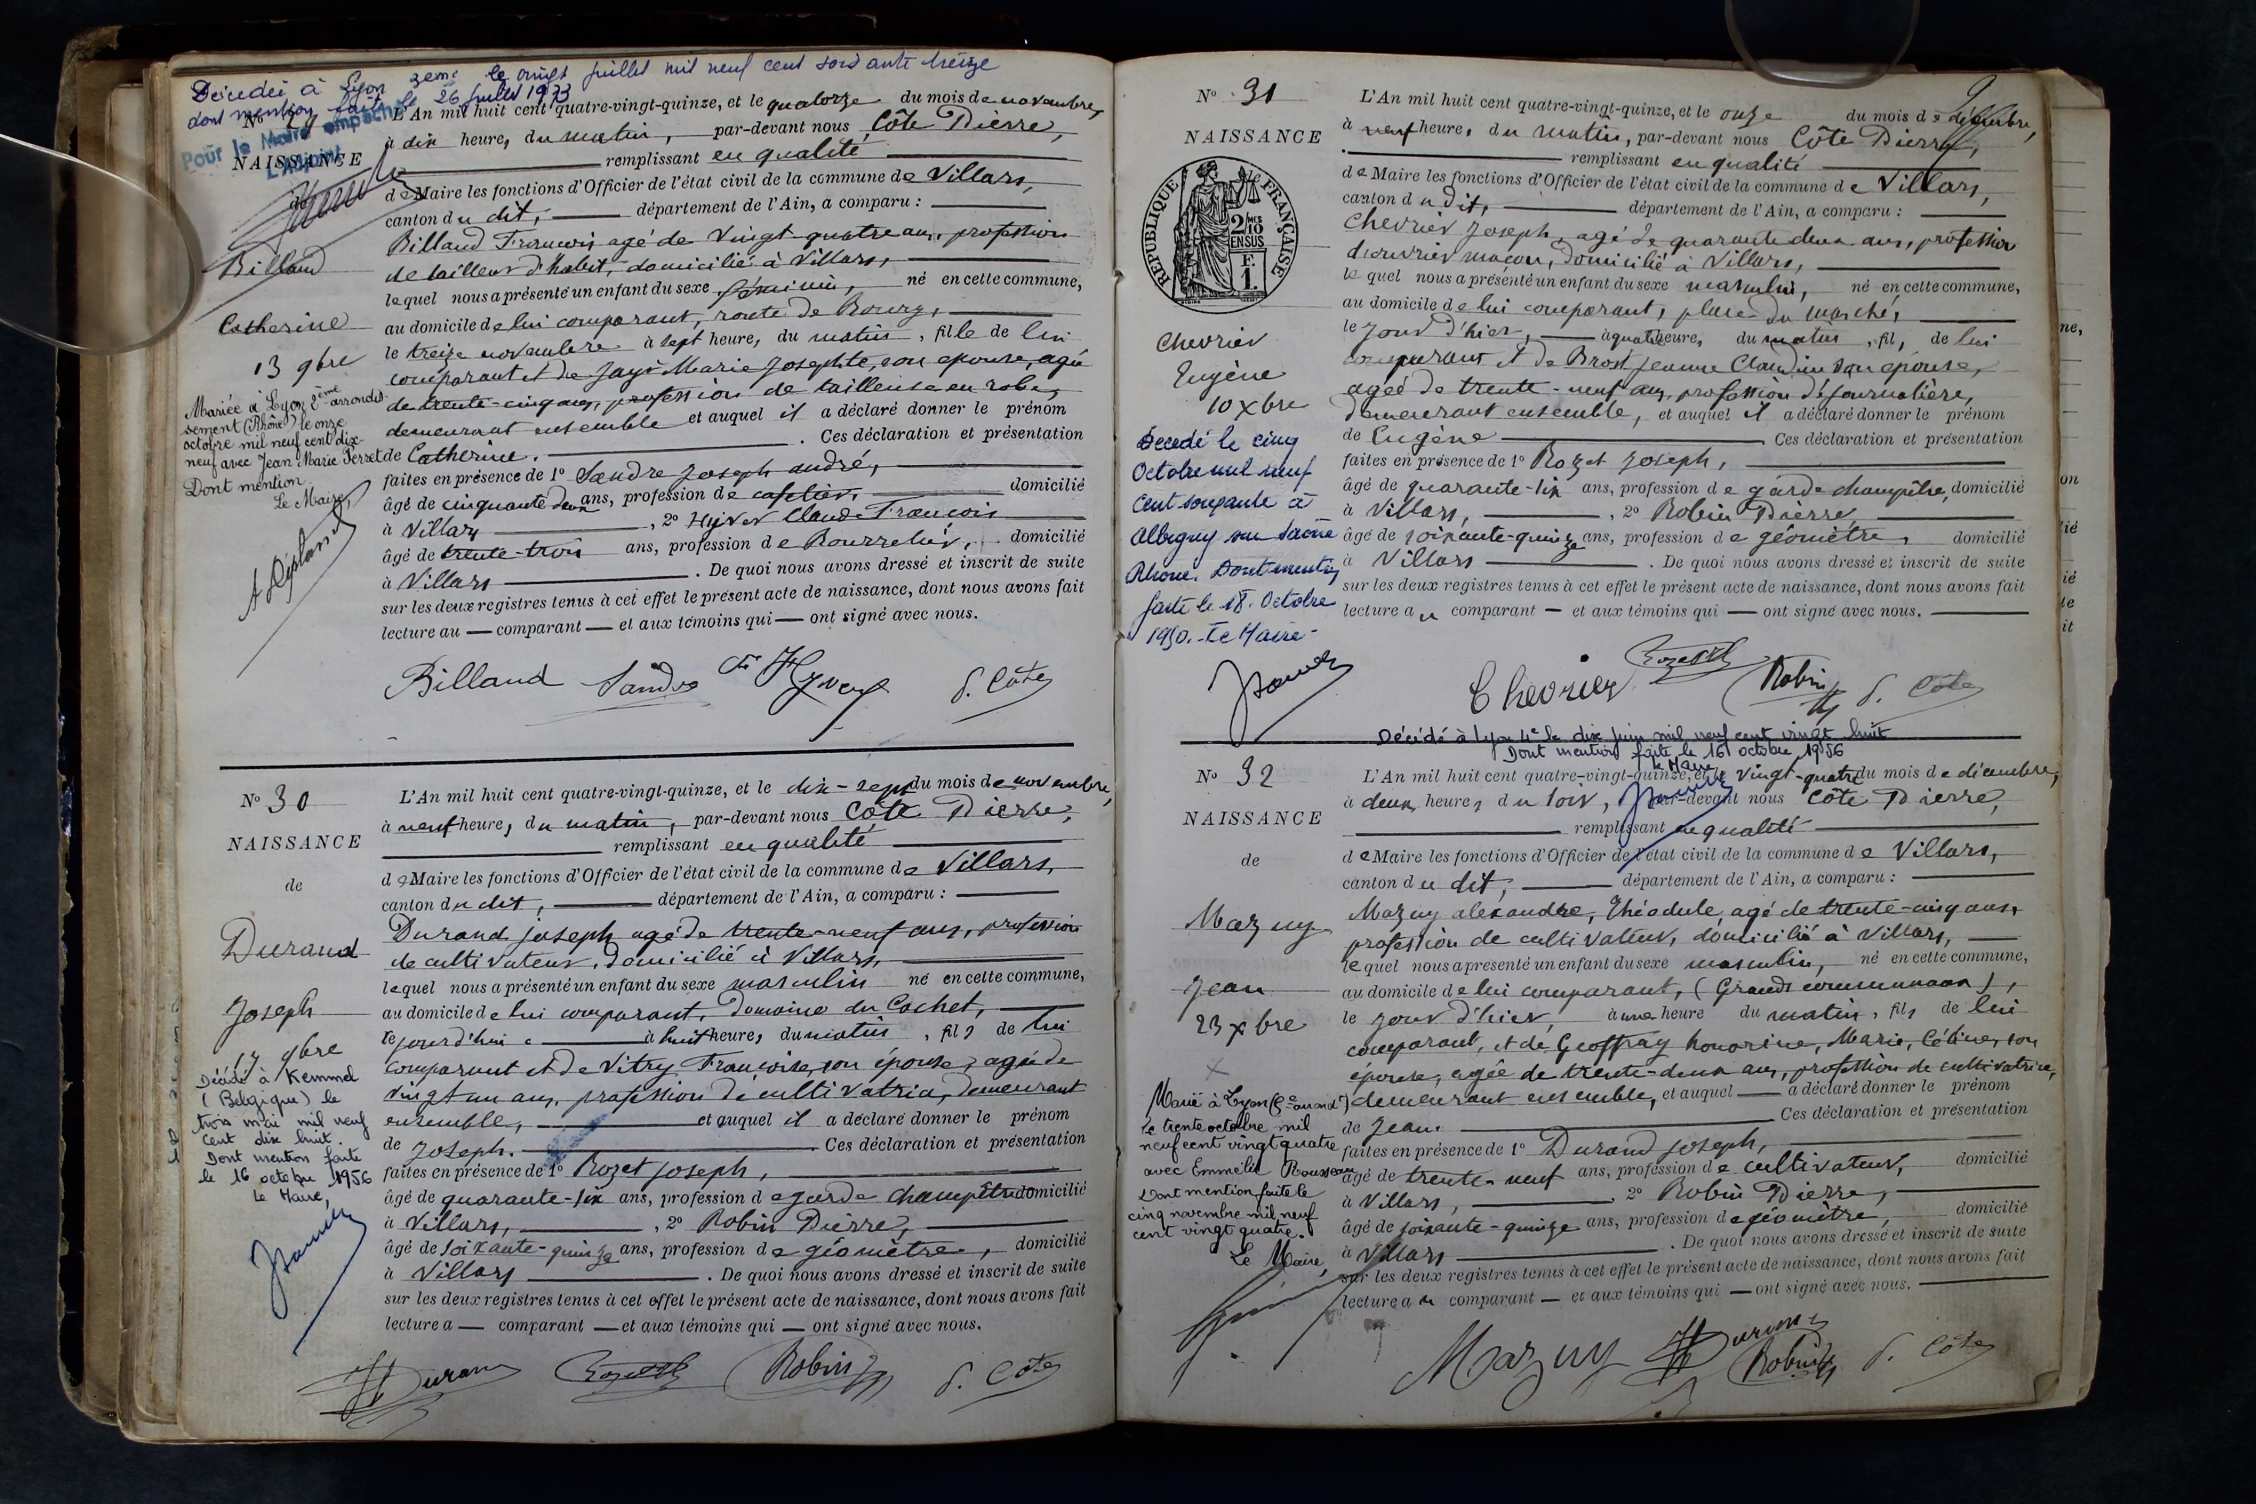 Décédée à Lyon 3eme le vingt juillet mil neuf cent soixante treize
dont mention faite le 26 juillet 1973
Pour le Maire empêché
L'Adjoint
No
NAISSANCE
de
Billaud
Catherine
13 9bre
Mariée à Lyon 3ème arrondis-
sement (Rhône) le onze
octobre mil neuf cent dix-
neuf avec Jean Marie Perret
Dont mention
Le Maire,
L'An mil huit cent quatre-vingt-quinze, et le quatorze du mois de novembre,
à dix heure, du matin, par-devant nous Côte Pierre,
remplissant en qualité
de Maire les fonctions d'Officier de l'état civil de la commune de Villars,
canton du dit, département de l'Ain, a comparu :
Billaud François agé de vingt-quatre ans, profession
de tailleur d'habit, domicilié à Villars,
lequel nous a présenté un enfant du sexe féminin, né en cette commune,
au domicile de lui comparant, route de Bourg,
le treize novembre à sept heure, du matin, fille de lui
comparant et de Jayr Marie Josephte, son épouse, agée
de trente-cinq ans, profession de tailleuse en robes,
demeurant ensemble et auquel il a déclaré donner le prénom
de Catherine. Ces déclaration et présentation
faites en présence de 1o Sandre Joseph andré,
âgé de cinquante deux ans, profession de cafetier, domicilié
à Villars, 2o Hyver Claude François
âgé de trente-trois ans, profession de Bourrelier, domicilié
à Villars. De quoi nous avons dressé et inscrit de suite
sur les deux registres tenus à cet effet le présent acte de naissance, dont nous avons fait
lecture au — comparant — et aux témoins qui — ont signé avec nous.
Billaud Sandre Hyver P. Côte
No 30
NAISSANCE
de
Durand
Joseph
17 9bre
Décédé à Kemmel
(Belgique) le
trois mai mil neuf
cent dix huit.
Dont mention faite
le 16 octobre 1956
Le Maire,
L'An mil huit cent quatre-vingt-quinze, et le dix-sept du mois de novembre,
à neuf heure, du matin, par-devant nous Côte Pierre,
remplissant en qualité
de Maire les fonctions d'Officier de l'état civil de la commune de Villars,
canton du dit, département de l'Ain, a comparu :
Durand joseph agé de trente-neuf ans, profession
de cultivateur, domicilié à Villars,
lequel nous a présenté un enfant du sexe masculin né en cette commune,
au domicile de lui comparant, Domaine du Cochet,
le jourd'hui à huit heure, du matin, fils de lui
comparant et de Vitry Françoise, son épouse, agée de
vingt un ans, profession de cultivatrice, demeurant
ensemble, et auquel il a déclaré donner le prénom
de Joseph. Ces déclaration et présentation
faites en présence de 1o Rozet Joseph,
âgé de quarante-six ans, profession de garde champêtre domicilié
à Villars, 2o Robin Pierre,
âgé de soixante-quinze ans, profession de géomètre, domicilié
à Villars. De quoi nous avons dressé et inscrit de suite
sur les deux registres tenus à cet effet le présent acte de naissance, dont nous avons fait
lecture a — comparant — et aux témoins qui — ont signé avec nous.
Durand Rozet Robin P. Côte
No 31
NAISSANCE
REPUBLIQUE FRANÇAISE
2/10 MES
EN SUS
1 F.
Chevrier
Eugène
10 Xbre
Décédé le cinq
Octobre mil neuf
Cent soixante à
Albigny sur Saône
Rhône. Dont mention
faite le 18. Octobre
Le Maire
L'An mil huit cent quatre-vingt-quinze, et le onze du mois de décembre,
à neuf heure, du matin, par-devant nous Côte Pierre,
remplissant en qualité
de Maire les fonctions d'Officier de l'état civil de la commune de Villars,
canton du dit, département de l'Ain, a comparu :
Chevrier Joseph, agé de quarante deux ans, profession
d'ouvrier maçon, domicilié à Villars,
lequel nous a présenté un enfant du sexe masculin, né en cette commune,
au domicile de lui comparant, place du marché,
le jour d'hier, à quatre heure, du matin, fils, de lui
comparant et de Brost Jeanne Claudine son épouse,
agée de trente-neuf ans, profession de journalière,
demeurant ensemble, et auquel il a déclaré donner le prénom
de Eugène Ces déclaration et présentation
faites en présence de 1o Rozet Joseph,
âgé de quarante-six ans, profession de garde champêtre, domicilié
à Villars, 2o Robin Pierre
âgé de soixante-quinze ans, profession de géomètre, domicilié
à Villars. De quoi nous avons dressé et inscrit de suite
sur les deux registres tenus à cet effet le présent acte de naissance, dont nous avons fait
lecture au comparant — et aux témoins qui — ont signé avec nous.
Chevrier Rozet Robin P. Côte
Décédé à Lyon 4e le dix juin mil neuf cent vingt huit
Dont mention faite le 16 octobre 1956
le Maire
No 32
NAISSANCE
de
Mazuy
Jean
23 Xbre
Marié à Lyon (3e arrondt)
le trente octobre mil
neuf cent vingt quatre
avec Emmélie Rousseau
Dont mention faite le
cinq novembre mil neuf
cent vingt quatre.
Le Maire,
L'An mil huit cent quatre-vingt-quinze, et le vingt-quatre du mois de décembre,
à deux heure, du soir, par-devant nous Côte Pierre,
remplissant en qualité
de Maire les fonctions d'Officier de l'état civil de la commune de Villars,
canton du dit, département de l'Ain, a comparu :
Mazuy alexandre, Théodule, agé de trente-cinq ans,
profession de cultivateur, domicilié à Villars,
lequel nous a présenté un enfant du sexe masculin, né en cette commune,
au domicile de lui comparant,
le jour d'hier, à une heure du matin, fils de lui
comparant, et de Geoffray honorine, Marie, Céline, son
épouse, agée de trente-deux ans, profession de cultivatrice,
demeurant ensemble, et auquel — a déclaré donner le prénom
de Jean. Ces déclaration et présentation
faites en présence de 1o Durand Joseph,
âgé de trente-neuf ans, profession de cultivateur, domicilié
à Villars, 2o Robin Pierre,
âgé de soixante-quinze ans, profession de géomètre, domicilié
à Villars. De quoi nous avons dressé et inscrit de suite
sur les deux registres tenus à cet effet le présent acte de naissance, dont nous avons fait
lecture au comparant — et aux témoins qui — ont signé avec nous.
Mazuy Durand Robin P. Côte